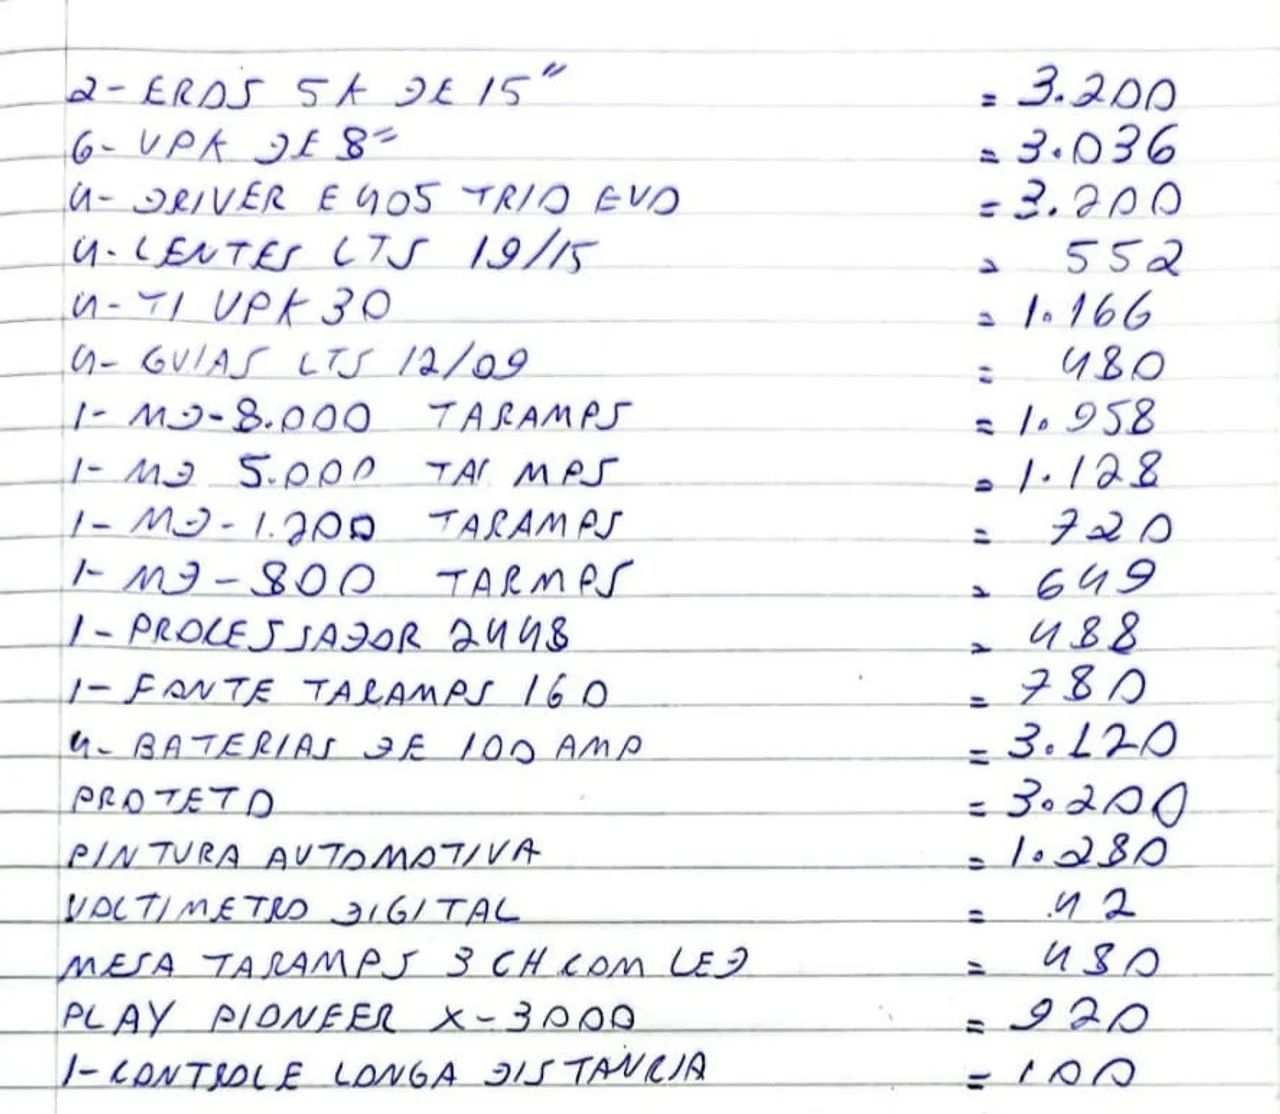 2- EROS 5K DE 15" = 3.200
6- VPK DE 8" = 3.036
4- DRIVER E 405 TRIO EVO = 3.200
4- LENTES LTS 19/15 = 552
4- TI VPK 30 = 1.166
4- GUIAS LTS 12/09 = 480
1- MD-8.000 TARAMPS = 1.958
1- MD 5.000 TAR MPS = 1.128
1- MD-1.200 TARAMPS = 720
1- MD-800 TARMPS = 649
1- PROCESSADOR 2448 = 488
1- FONTE TARAMPS 160 = 780
4- BATERIAS DE 100 AMP = 3.120
PROTETO = 3.200
PINTURA AUTOMOTIVA = 1.280
VOLTIMETRO DIGITAL = 42
MESA TARAMPS 3 CH COM LED = 480
PLAY PIONEER X-3000 = 920
1- CONTROLE LONGA DISTANCIA = 100